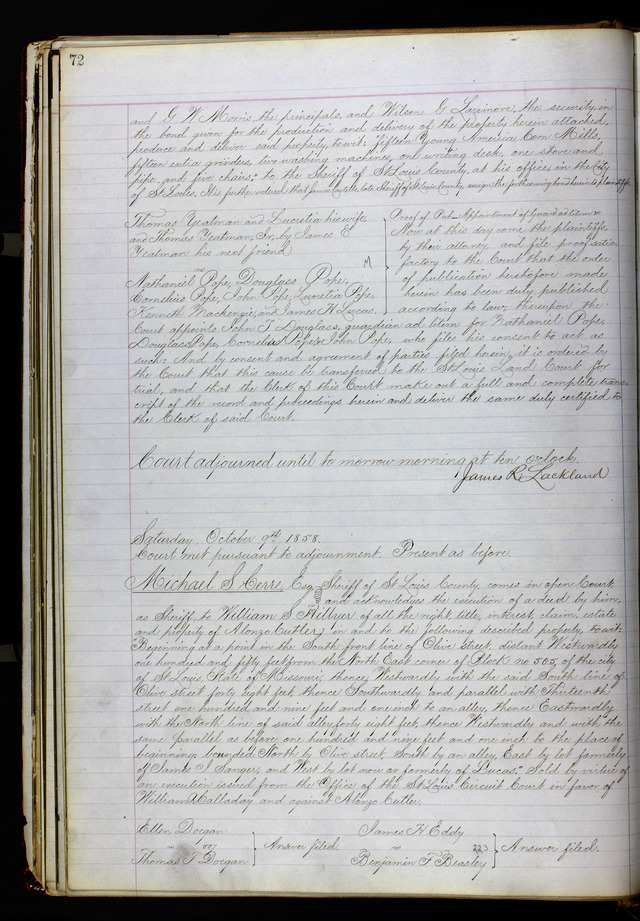 72
and G W Morris, the principals, and Wilson G Larimore, the security, in
the bond given for the production and delivery of the property herein attached,
produce and deliver said property, towit: fifteen Young America Corn Mills,
fifteen extra grinders, two washing machines, one writing desk, one stove and
pipe, and five chairs," to the Sheriff of St Louis County, at his offices in the City
of St Louis. It is further ordered that late Sheriff of St Louis County, assign the forthcoming bond herein to plaintiffs
Thomas Yeatman and Lucretia his wife,
and Thomas Yeatman, Jr, by James E
Yeatman his next friend
vs
Nathaniel Pope, Douglass Pope,
Cornelius Pope, John Pope, Lucretia Pope,
Kenneth Mackenzie, and James H Lucas.
M
Proof of Pub_ Appointment of Guard ad litem &c
Now at this day come the plaintiffs,
by their attorney, and file proof satis
factory to the Court that the order
of publication heretofore made
herein has been duly published
according to law; thereupon the
Court appoints John T Douglass, guardian ad litim for Nathaniel Pope,
Douglass Pope, Cornelius Pope & John Pope, who files his consent to act as
such. And by consent and agreement of parties filed herein, it is ordered by
the Court that this cause be transferred to the St Louis Land Court for
trial, and that the Clerk of this Court make out a full and complete trans
cript of the record and proceedings herein and deliver the same duly certified to
the Clerk of said Court.
Court adjourned until to morrow morning at ten o'clock.
James R. Lackland
Saturday October 9th 1858.
Court met pursuant to adjournment. Present as before.
Michael S Cerre, Esq, Sheriff of St Louis County, comes in open Court,
and acknowledges the execution of a deed by him,
as Sheriff, to William S Hillyer of all the right, title, interest, claim, estate
and property of Alonzo Cutler, in and to the following described property, towit:
"Beginning at a point in the South front line of Olive Street, distant Westwardly
one hundred and fifty feet from the North East corner of Block no 505, of the city
of St Louis State of Missouri, thence Westwardly with the said South line of
Olive street forty eight feet, thence Southwardly and parallel with Thirteenth
street one hundred and nine feet and one inch to an alley, thence Eastwardly
with the North line of said alley, forty eight feet, thence Westwardly and with the
same parallel as before, one hundred and nine feet and one inch to the place of
beginning bounded North by Olive street, South by an alley, East by lot formerly
of James T Sanger, and West by lot now or formerly of Lucas." Sold by virtue of
an execution issued from the Office of the St Louis Circuit Court in favor of
William Halladay and against Alonzo Cutler.
Ellen Doegan
vs 887
Thomas T Doegan
Answer filed.
James H Eddy
vs 223
Benjamin F Beasley
Answer filed.